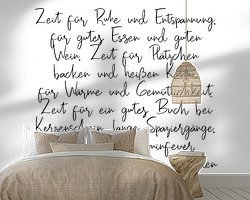 Zeit für Ruhe und Entspannung,
für gutes Essen und guten
Wein, Zeit für Plätzchen
backen und heißen
für Wärme und Gemütlichkeit.
Zeit für ein gutes Buch bei
Kerzenschein, lange Spaziergänge,